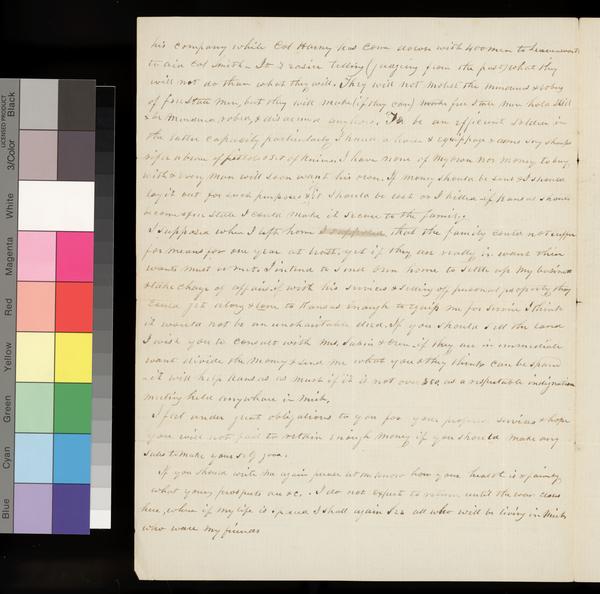 his company while Col Harney has come down with 400 men to Leavenworth
to aid Col Smith. It is easier telling (judging from the past) what they
will not do than what they will. They will not molest the murderers & robbers
of free State men, but they will make (if they can) make free State men hold still
& be murdered, robed, & disarmed anyhow. To be an efficient soldier in
the latter capacity particularly I need a horse & equippage & arms say sharps
rifle a brace of pistols & set of knives. I have none of my own nor money to buy
with & every man will soon want his own. If money should be sent & I should
lay it out for such purposes & it should be lost or I killed if Kansas should
become a free State I could make it secure to the family.
I supposed when I left home I supposed that the family could not suffer
for means for one year at least, yet if they are really in want their
wants must be met. I intend to send home to settle up my business
& take charge of affairs, if with his services & selling off personal property they
could get along & loan to Kansas enough to equip me for service I think
it would not be an uncharitable deed. If you should sell the land
I wish you to consult with Mrs. Sabin & even if they are in immediate
want divide the money & send me what you & they think can be spared
& it will help Kansas as much if it is not over $50, as a respectable indignation
meeting held anywhere in Mich.
I feel under great obligations to you for your proposed services & hope
you will not fail to retain enough money if you should make any
sales to make yourself good.
If you should write me again please let me know how your health is & family
what your prospects are &c. I do not expect to return until the war closes
here, when if my life is spared I shall again see all who will be living in Mich
who were my friends
Black
3/Color
White
Magenta
Red
Yellow
Green
Cyan
Blue
LICENSED PRODUCT